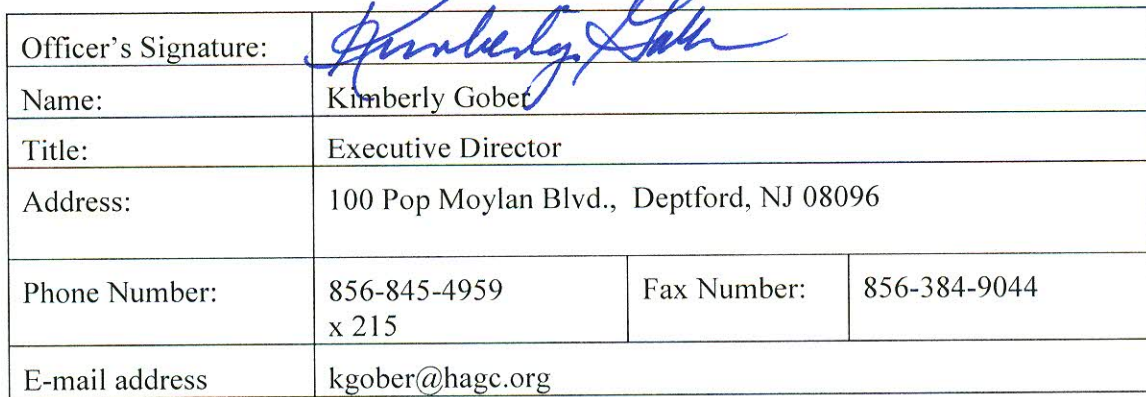 Officer's Signature: Kimberly Gober
Name: Kimberly Gober
Title: Executive Director
Address: 100 Pop Moylan Blvd., Deptford, NJ 08096
Phone Number: 856-845-4959 Fax Number: 856-384-9044
x 215
E-mail address kgober@hagc.org